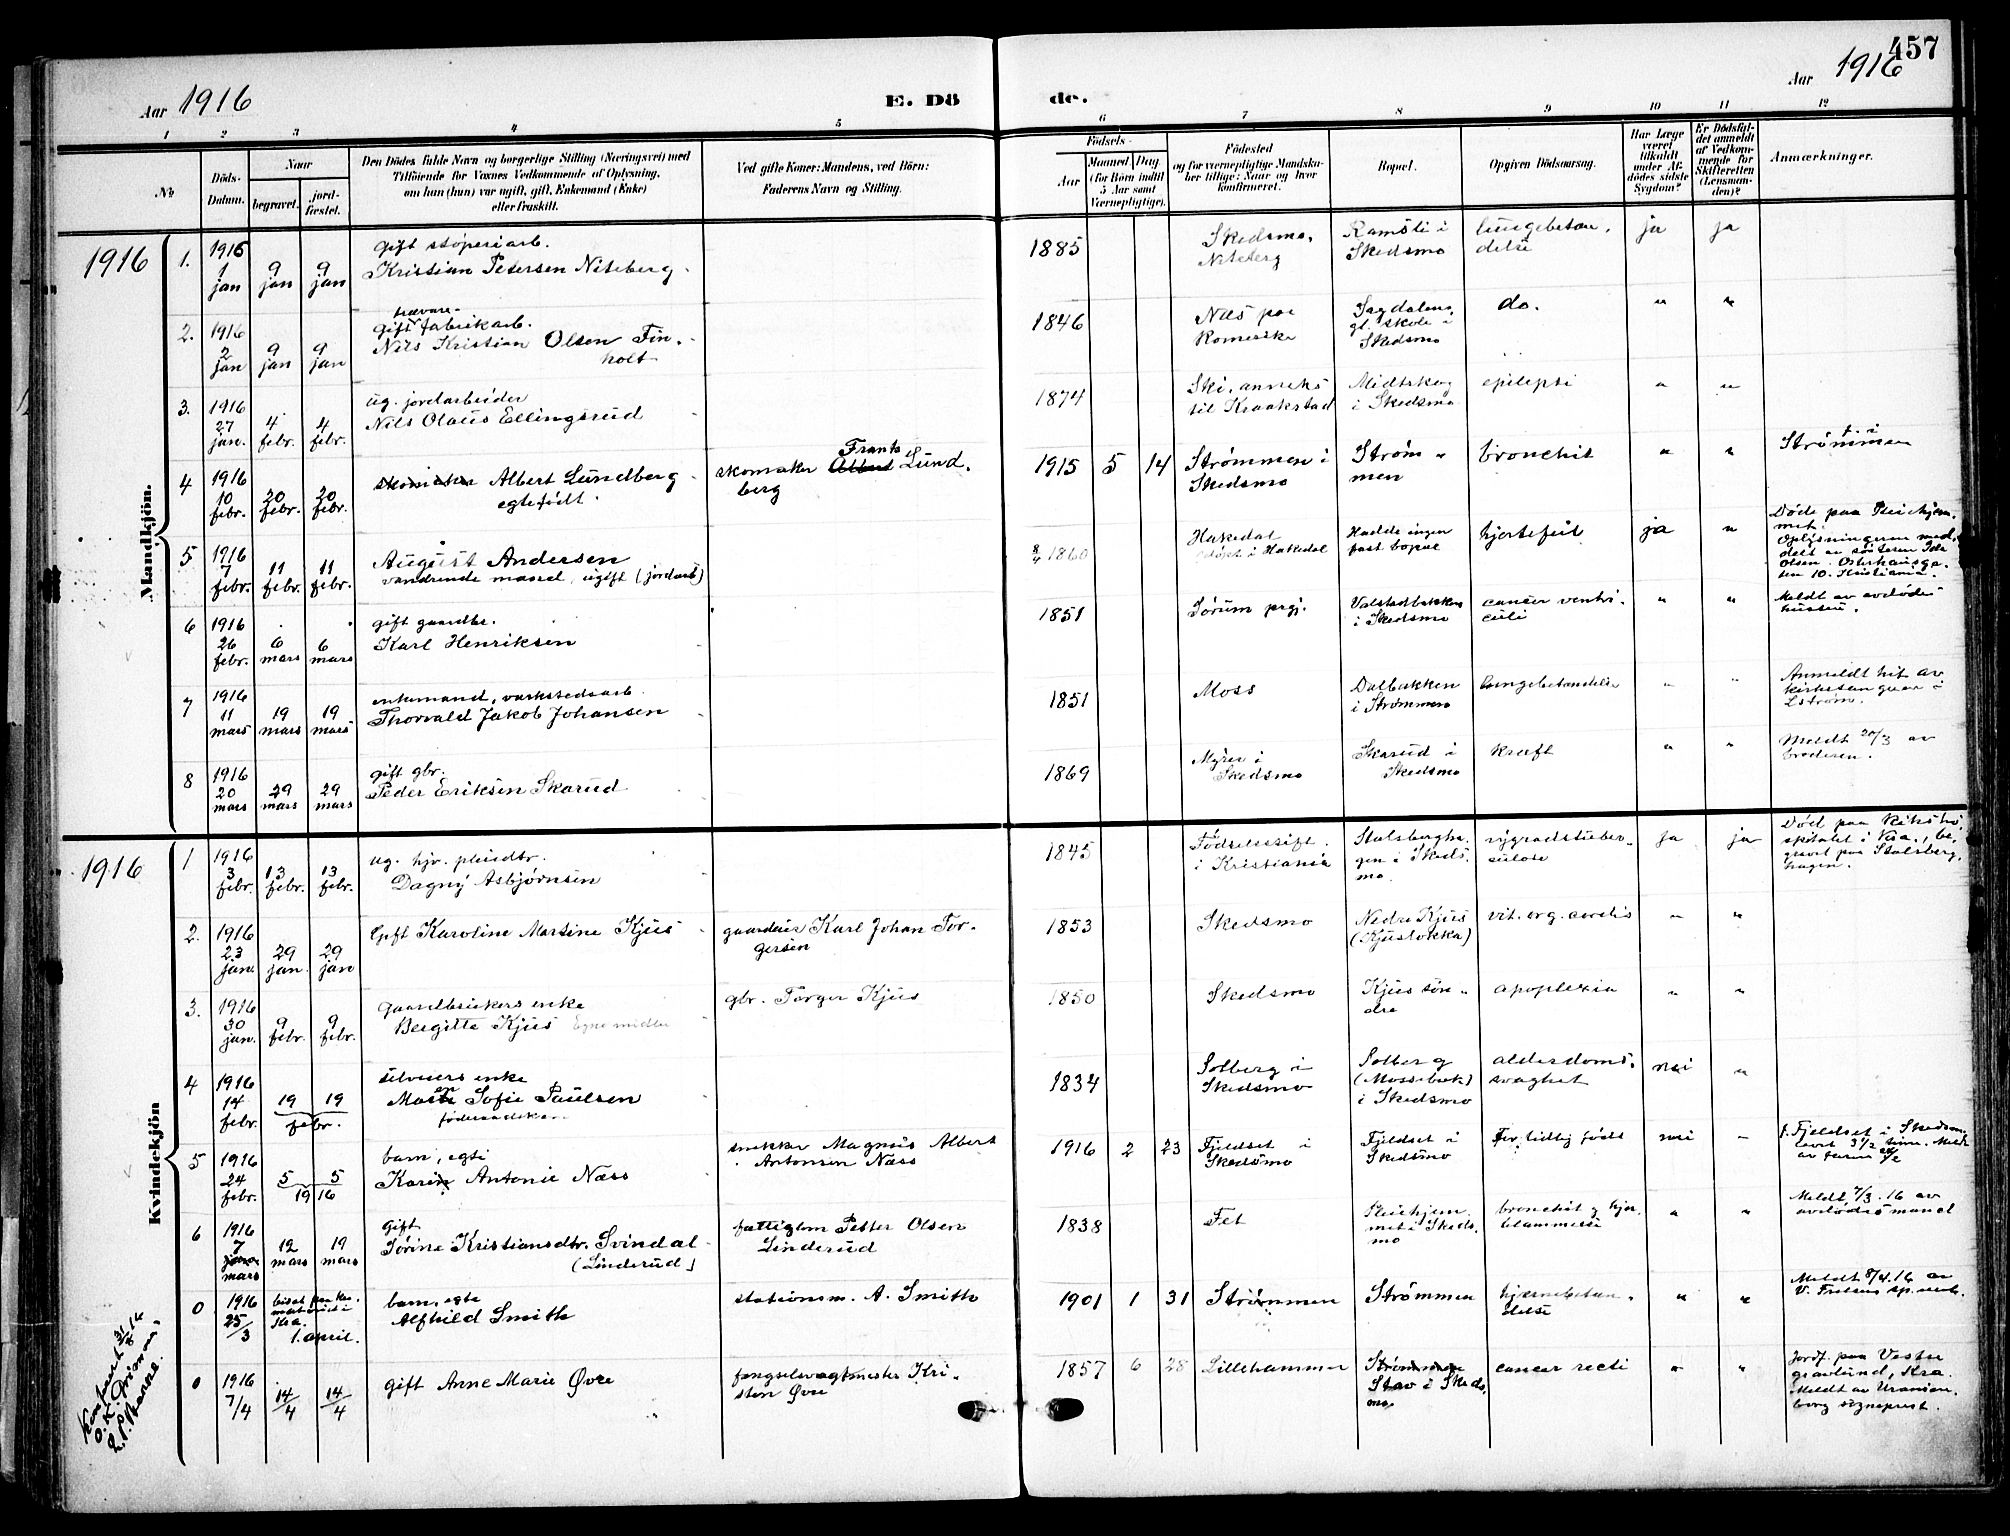 457
Aar 1916
E. Dö
de.
Aar 1916
1 2 3 4 5 6 7 8 9 10 11 12
No
Döds-Datum.
Naar
begravet.
jord-fæstet.
Den Dödes fulde Navn og borgerlige Stilling (Næringsvei) med
Tilföiende for Voxnes Vedkommende af Oplysning,
om han (hun) var ugift, gift, Enkemand (Enke)
eller fraskilt.
Ved gifte Koner: Mandens, ved Börn:
Faderens Navn og Stilling.
Födsels-
Aar
Maaned
Dag
(for Börn indtil
5 Aar samt
Værnepligtige).
Födested
og for værnepligtige Mandska-
ber tillige: Naar og hvor
konfirmeret.
Bopæl.
Opgiven Dödsaarsag.
Har Læge
været
tilkaldt
under Af-
dödes sidste
Sygdom?
Er Dödsfal-
det anmeldt
af Vedkom-
mende for
Skifteretten
(Lensman-
den)?
Anmærkninger.
Mandkjön.
1916
1. 1916 1 jan 9 jan 9 jan
gift støperiarb.
Kristian Petersen Niteberg
1885 Skedsmo, Niteberg
Ramsli i Skedsmo
lungebetændelse
ja ja
2. 1916 2 jan 9 jan 9 jan
trævare-
gift fabrikarb.
Nils Kristian Olsen Fin-
holt
1846 Næs paa Romerike
Sagdalens gl. skole i Skedsmo
do.
" "
3. 1916 27 jan. 4 febr. 4 febr.
ug. jordarbeider
Nils Olaus Ellingsrud
1874 Ski, anneks til Kraakstad
Midtskog i Skedsmo
epilepsi
" "
4 1916 10 febr. 20 febr. 20 febr.
skomaker Albert Lundberg
egtefødt.
skomaker Albert Frants Lund-
berg
1915 5 14 Strømmen i Skedsmo
Strømmen
bronchit
" "
f. i
Strømmen
5 1916 7 febr. 11 febr. 11 febr.
August Andersen
vandrende mand, ugift (jordarb)
8/4 1860 Hakedal
døbt i Hakedal
Hadde ingen
fast bopæl
hjertefeil
ja "
Døde paa Pleiehjem-
met.
Oplysningerne med-
delt av søsteren Ida
Olsen. Osterhausga-
ten 10. Kristiania.
6 1916 26 febr. 6 mars 6 mars
gift gaardbr.
Karl Henriksen
1851 Sørum prgj.
Valstadbakken i Skedsmo
cancer ventri-
culi
" "
Meldt av avdødes
hustru.
7 1916 11 mars 19 mars 19 mars
enkemand, verkstedsarb.
Thorvald Jakob Johansen
1851 Moss
Dalbakken i Strømmen
lungebetændelse
" "
Anmeldt hit av
kirkesanger i
Lstrøm.
8 1916 20 mars 29 mars 29 mars
gift gbr.
Peder Eriksen Skarud
1869 Myrer i Skedsmo
Skarud i Skedsmo
kræft
" "
Meldt 20/3 av
broderen.
Kvindekjön
1916
1 1916 3 febr. 13 febr. 13 febr.
ug. hjv. pleiedtr.
Dagny Asbjørnsen
1845 Fødselsstift. i Kristiania
Stalsbergha-
gen i Skeds-
mo.
rygradstuber-
culose
ja ja
Død paa Rikshos-
pitalet i Kra., be-
gravet paa Stalsberg-
hagen.
2. 1916 23 jan. 29 jan. 29 jan
Gift Karoline Martine Kjus
gaardeier Karl Johan Tor-
gersen
1853 Skedsmo
Nedre Kjus
(Kjusløkka)
vit. org. cordis
" "
3. 1916 30 jan. 9 febr. 9 febr.
gaardbrukers enke
Bergitte Kjus Egne midler
gbr. Torger Kjus
1850 Skedsmo
Kjus søn-
dre
apoplexia
" "
4 1916 14 febr. 19 19 febr.
selveiers enke
Maren Sofie Paulsen
føderaadskone
1834 Solberg i Skedsmo
Solberg
(Mossebæk)
i Skedsmo
alderdoms-
svaghet
nei "
5 1916 24 febr. 5 5 1916
barn, egte
Karin Antonie Næss
snekker Magnus Albert
Antonsen Næss
1916 2 23 Fjeldset i Skedsmo
Fjeldset i Skedsmo
For tidlig født
nei "
f. Fjeldset i Skedsm.
levet 3 1/2 time. Meldt
av faren
6 1916 7 mars 12 mars 19 mars
Gift
Sørine Kristiansdtr. Svindal
(Linderud)
fattiglem Petter Olsen
Linderud
1838 Fet
Pleiehjem-
met i Skeds-
mo
bronchit og hjer-
tlammelse
" "
Meldt 7/3.16 av
avdødes mand
0 1916 25/3
bisat paa Kre-
matoriet i
Kra.
1. april.
barn, egte
Alfhild Smith
stationsm. A. Smith
1901 1 31 Strømmen
Strømmen
hjernebetæn-
delse
" "
Meldt 8/4.16 av
V. Frelsers sp.emb.
0 1916 7/4 14/4 14/4
gift Anne Marie Øvre
fængselsvagtmester Kri-
stian Øvre
1857 6 28 Lillehammer
Strømmen
Stav i Skeds-
mo.
cancer recti
" "
Jordf. paa Vestre
gravlund, Kra.
Meldt av Uranien-
borg sogneprest.
Konferert 31/8 16